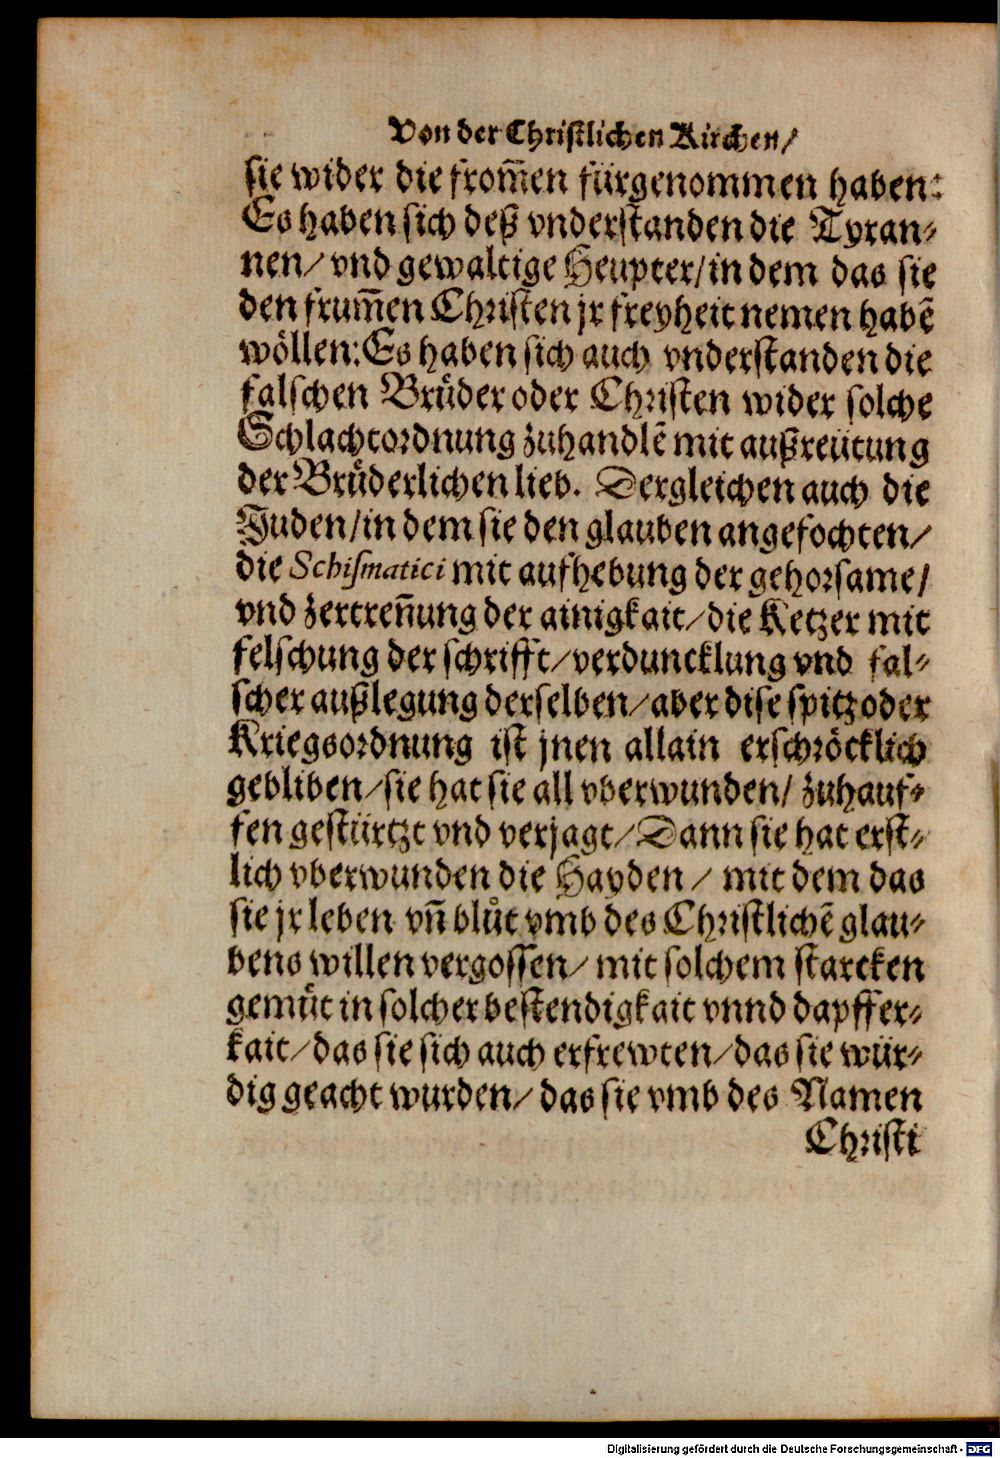 Von der Christlichen Kirchen/
sie wider die from̃en fürgenommen haben:
Es haben sich deß vnderstanden die Tyran-
nen/ vnd gewaltige Heupter/ in dem das sie
den frum̃en Christen jr freyheit nemen habẽ
wöllen: Es haben sich auch vnderstanden die
falschen Brüder oder Christen wider solche
Schlachtordnung zuhandlẽ mit außreütung
der Brüderlichen lieb. Dergleichen auch die
Juden/ in dem sie den glauben angefochten/
die Schiſmatici mit aufhebung der gehorsame/
vnd zertreñung der ainigkait/ die Ketzer mit
felschung der schrifft/ verduncklung vnd fal-
scher außlegung derselben/ aber dise spitz oder
Kriegsordnung ist jnen allain erschröcklich
gebliben/ sie hat sie all vberwunden/ zuhauf-
fen gestürtzt vnd verjagt/ Dann sie hat erst-
lich vberwunden die Hayden/ mit dem das
sie jr leben vñ blůt vmb des Christlichẽ glau-
bens willen vergossen/ mit solchem starcken
gemüt in solcher bestendigkait vnnd dapffer-
kait/ das sie sich auch erfrewten/ das sie wür-
dig geacht wurden/ das sie vmb des Namen
Christi
Digitalisierung gefördert durch die Deutsche Forschungsgemeinschaft - DFG